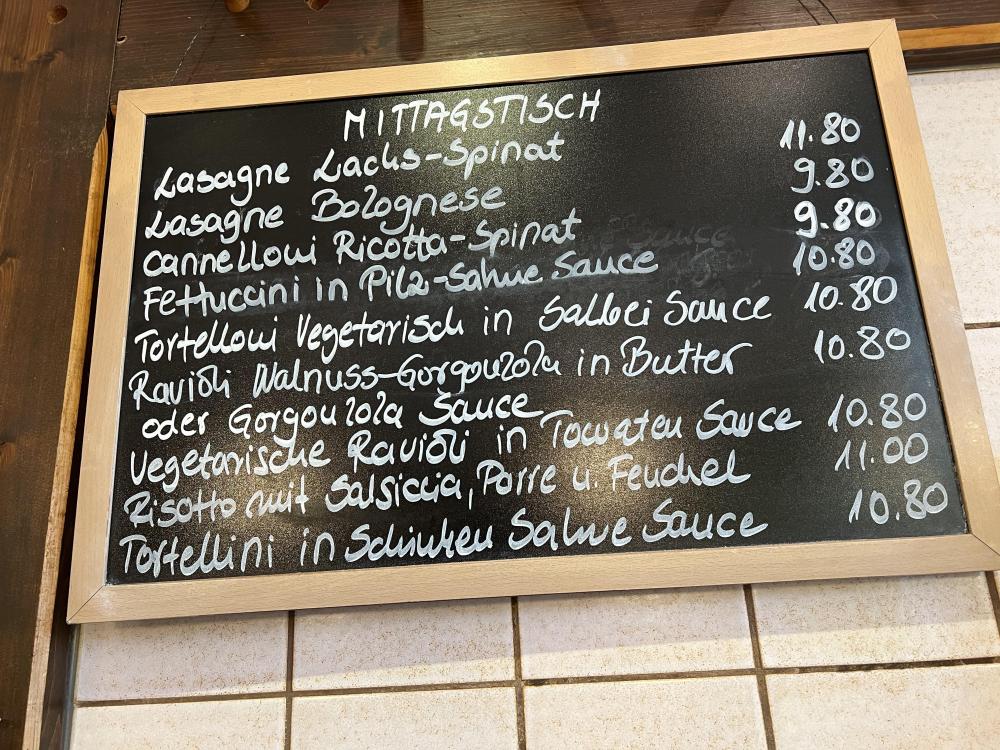 MITTAGSTISCH
Lasagne Lachs-Spinat 11.80
Lasagne Bolognese 9.80
Cannelloni Ricotta-Spinat 9.80
Fettuccini in Pilz-Sahne Sauce 10.80
Tortelloni Vegetarisch in Salbei Sauce 10.80
Ravioli Walnuss-Gorgonzola in Butter 10.80
oder Gorgonzola Sauce
Vegetarische Ravioli in Tomaten Sauce 10.80
Risotto mit Salsiccia, Porre u. Fenchel 11.00
Tortellini in Schinken Sahne Sauce 10.80